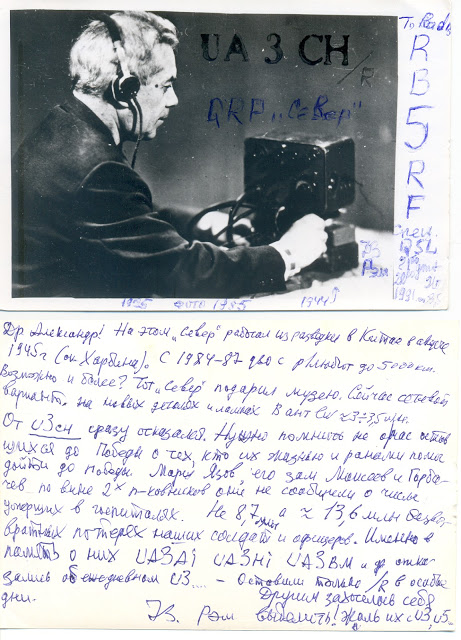 To Radio
UA 3 CH
/R
QRP „Север"
R
B
5
R
F
Спец.
QSL
1991
73
Рэм
1926 фото 1985 1944
Др. Александр! На этом „Север" работал из разведки в Китае в августе
1945г (ок. Харбина). С 1984-87 QSO с р/любит до 5000 км.
Возможно и более? Тот „Север" подарил музею. Сейчас
варианта на новых деталях и лампах В ант
От U3CH сразу отказался. Нужно помнить не о нас остав
шихся до Победы о тех, кто их жизнью и ранами помо
дойти до победы. Марш Язов, его зам Моисеев и Горба-
чев по вине 2х п-ковников они не сообщили о числе
умерших в госпиталях. Не 8,7 млн а ≈ 13,6 млн безвоз-
вратных потерях наших солдат и офицеров. Именно в
память о них UA3AI UA3HI UA3BM и др отка-
зались от ежедневном U3.... - Оставили только /R в особые
дни. Другим захотелось себя
73. Рэм выделить! Жаль их: U3, U5..